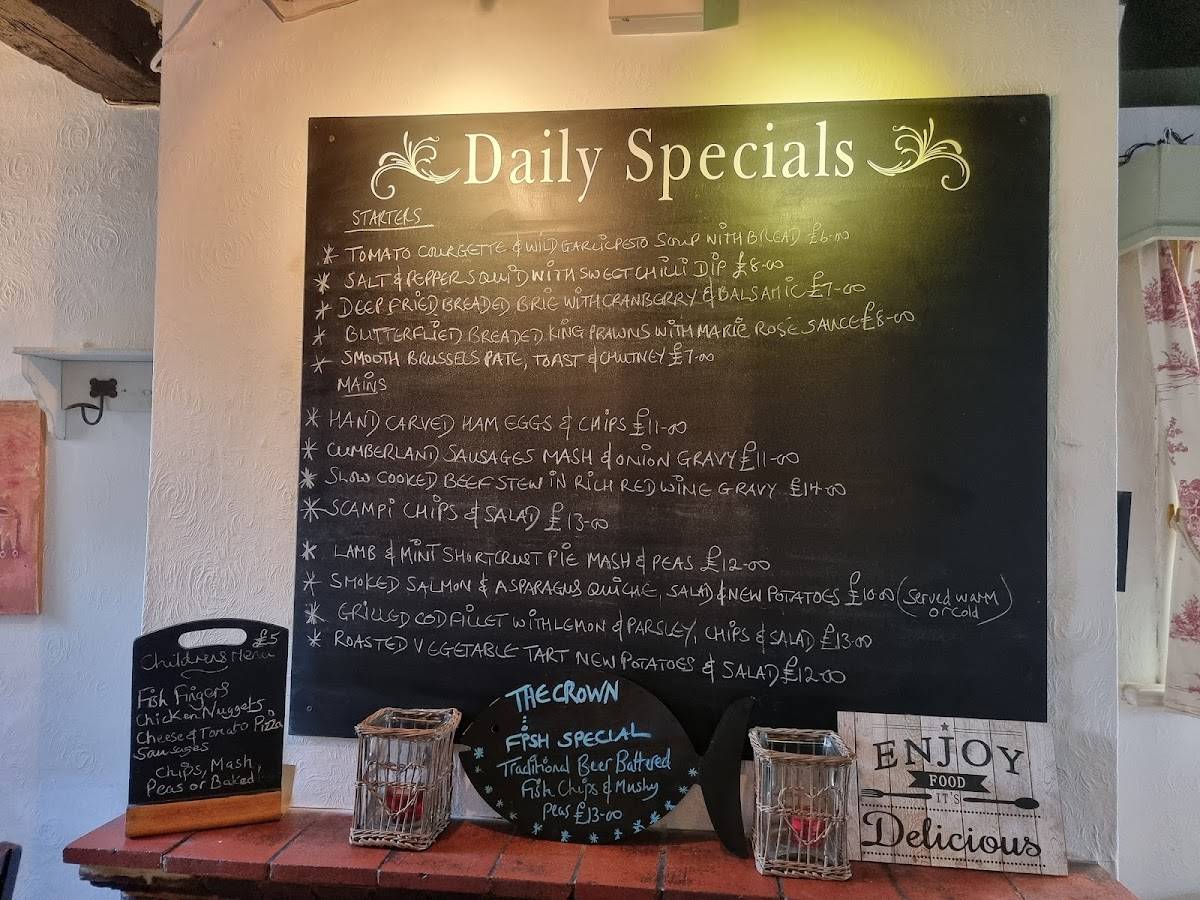 Daily Specials
STARTERS
* TOMATO COURGETTE & WILD GARLIC PESTO SOUP WITH BREAD £6-00
* SALT & PEPPER SQUID WITH SWEET CHILLI DIP £8-00
* DEEP FRIED BREADED BRIE WITH CRANBERRY & BALSAMIC £7-00
* BUTTERFLIED BREADED KING PRAWNS WITH MARIE ROSE SAUCE £8-00
* SMOOTH BRUSSELS PATE, TOAST & CHUTNEY £7-00
MAINS
* HAND CARVED HAM EGGS & CHIPS £11-00
* CUMBERLAND SAUSAGES MASH & ONION GRAVY £11-00
* SLOW COOKED BEEF STEW IN RICH RED WINE GRAVY £14-00
* SCAMPI CHIPS & SALAD £13-00
* LAMB & MINT SHORTCRUST PIE MASH & PEAS £12-00
* SMOKED SALMON & ASPARAGUS QUICHE, SALAD & NEW POTATOES £10-00 (served warm
or cold)
* GRILLED COD FILLET WITH LEMON & PARSLEY, CHIPS & SALAD £13-00
* ROASTED VEGETABLE TART NEW POTATOES & SALAD £12-00
£5
Childrens Menu
Fish Fingers
Chicken Nuggets
Cheese & Tomato Pizza
Sausages
Chips, Mash,
Peas or Baked
THE CROWN
FISH SPECIAL
Traditional Beer Battered
Fish Chips & Mushy
peas £13-00
ENJOY
FOOD
IT'S
Delicious